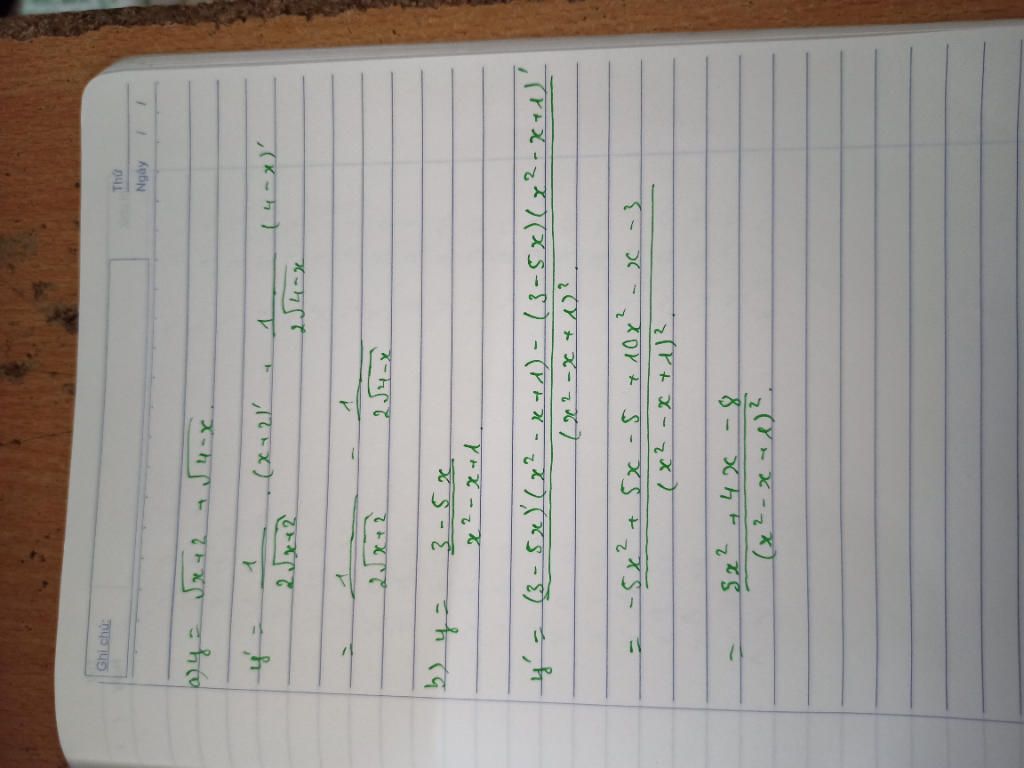 Ghi chú:
Thứ
Ngày / /
a) y = √(x+2) + √(4-x).
y' = 1/(2√(x+2)) . (x+2)' + 1/(2√(4-x)) (4-x)'
= 1/(2√(x+2)) - 1/(2√(4-x))
b) y = (3-5x)/(x²-x+1).
y' = ((3-5x)'(x²-x+1) - (3-5x)(x²-x+1)')/(x²-x+1)².
= (-5x² + 5x - 5 + 10x² - x - 3)/(x²-x+1)².
= (5x² + 4x - 8)/(x²-x+1)².